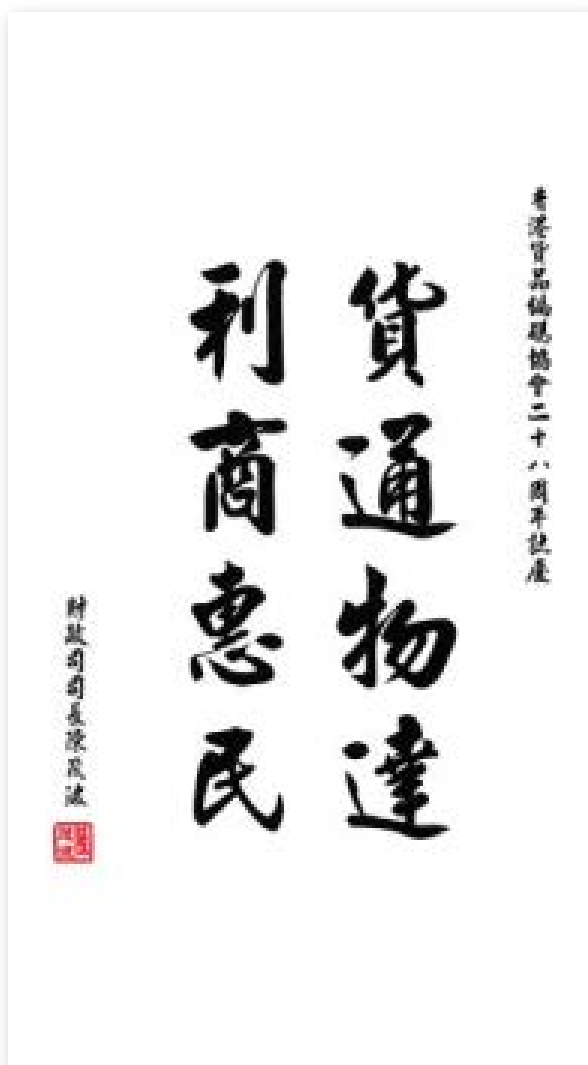 香港貨品編碼協會二十八周年誌慶
貨通物達
利商惠民
財政司司長陳茂波